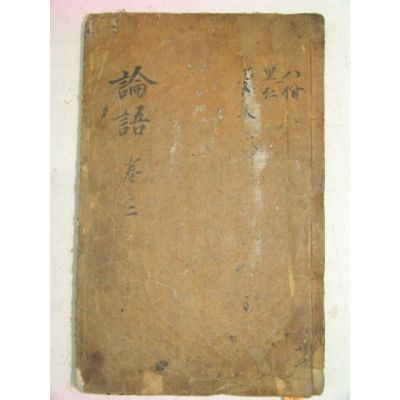 八佾
里仁
論語 卷之二